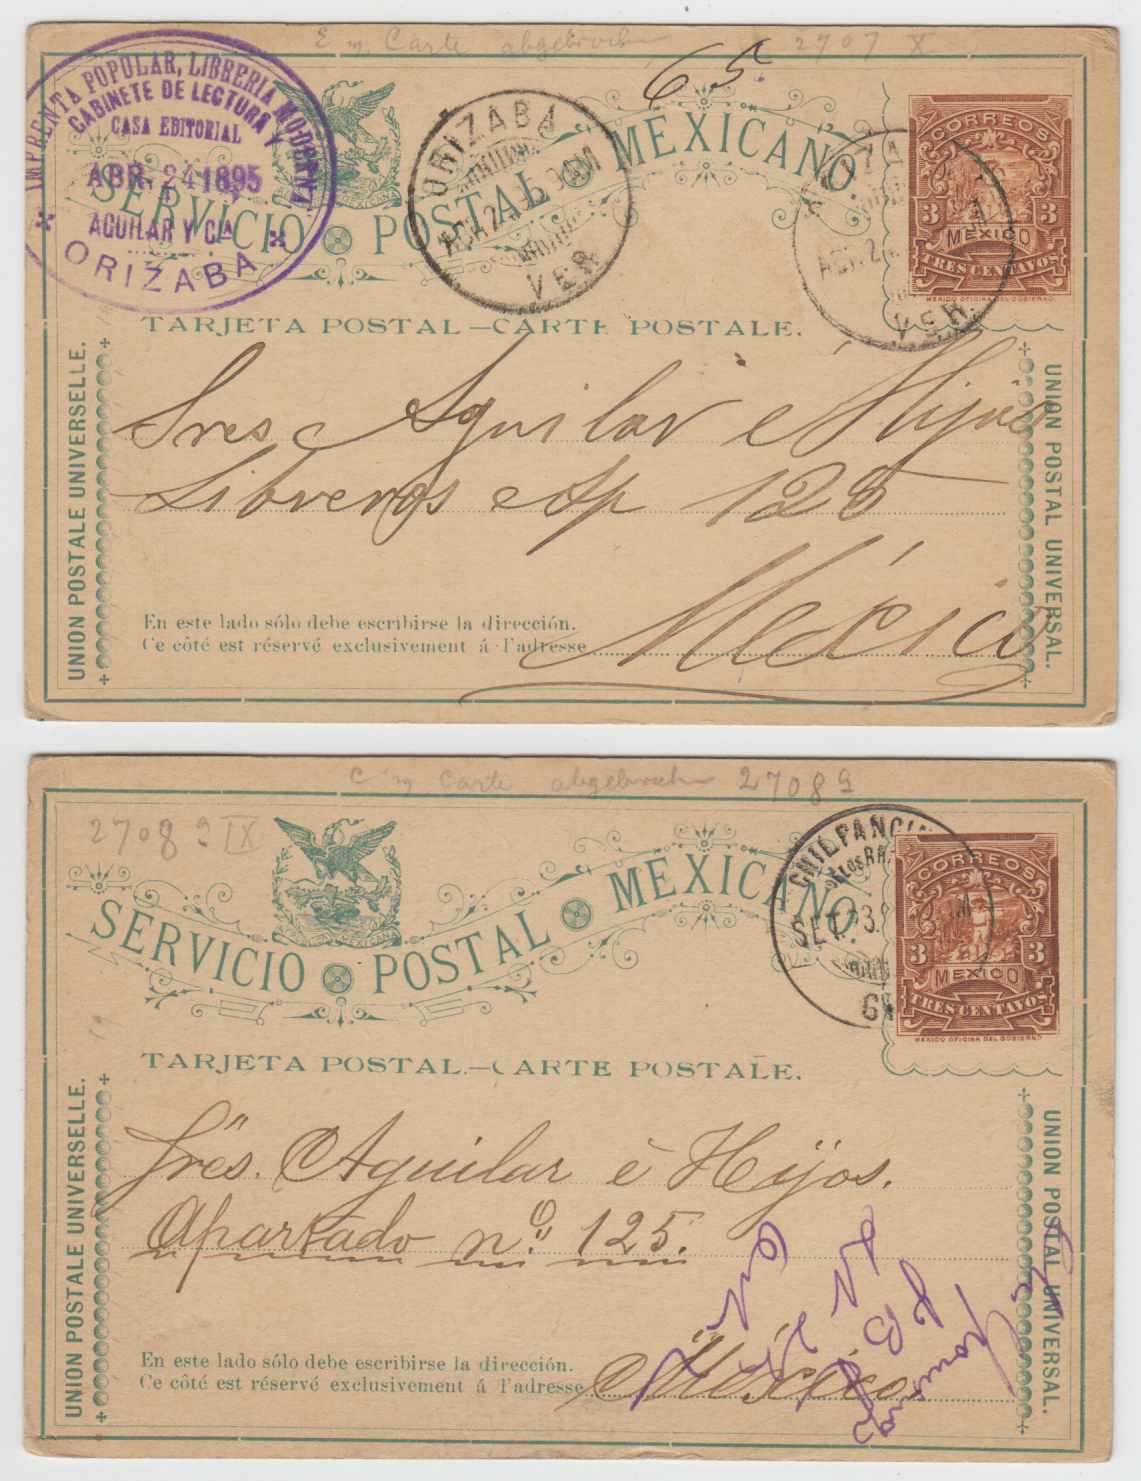 Carte 2707 X
65.
IMPRENTA POPULAR, LIBRERIA MODERNA Y
GABINETE DE LECTURA
CASA EDITORIAL
ABR. 24 1895
AGUILAR Y CA
ORIZABA
ORIZABA
VER
VER.
CORREOS
3 3
MEXICO
TRES CENTAVOS
MEXICO OFICINA DEL GOBIERNO
SERVICIO POSTAL MEXICANO
TARJETA POSTAL—CARTE POSTALE.
UNION POSTALE UNIVERSELLE.
UNION POSTAL UNIVERSAL.
Sres Aguilar e Hijos
Libreros Ap 125
México
En este lado sólo debe escribirse la dirección.
Ce côté est réservé exclusivement á l'adresse
Carte 2708 9
2708 9 IX
CHILPANCIN
SET.
CORREOS
3 3
MEXICO
TRES CENTAVOS
MEXICO OFICINA DEL GOBIERNO
SERVICIO POSTAL MEXICANO
TARJETA POSTAL—CARTE POSTALE.
UNION POSTALE UNIVERSELLE.
UNION POSTAL UNIVERSAL.
Srés. Aguilar é Hijos.
Apartado nº. 125.
México.
En este lado sólo debe escribirse la dirección.
Ce côté est réservé exclusivement á l'adresse